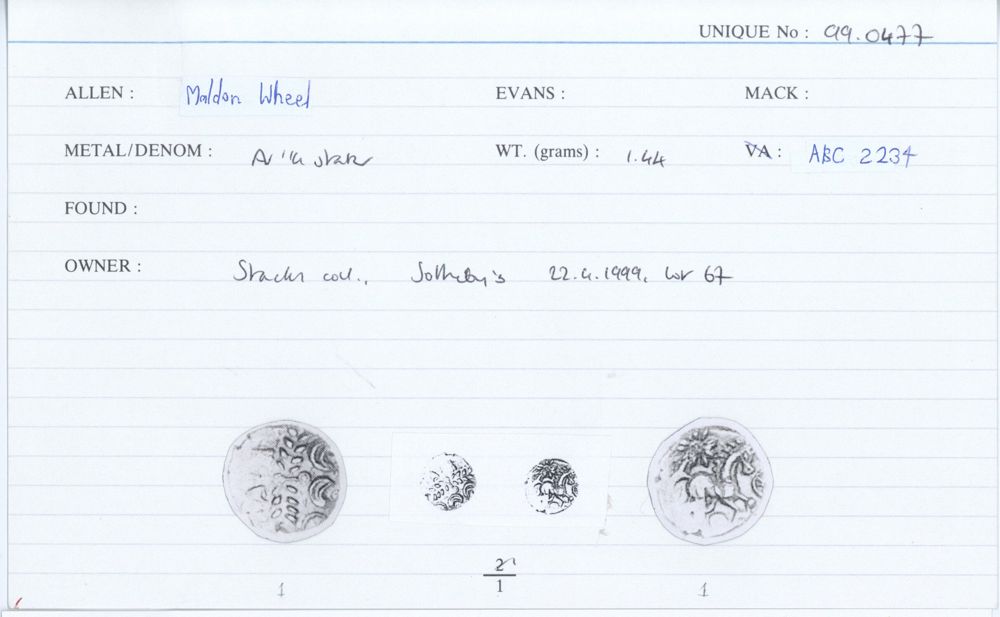 UNIQUE No : 99.0477
ALLEN : Maldon Wheel EVANS : MACK :
METAL/DENOM : AV ¼ stater WT. (grams) : 1.44 VA : ABC 2234
FOUND :
OWNER : coll., Sotheby's 22.4.1999, lot 67
2
1 1 1